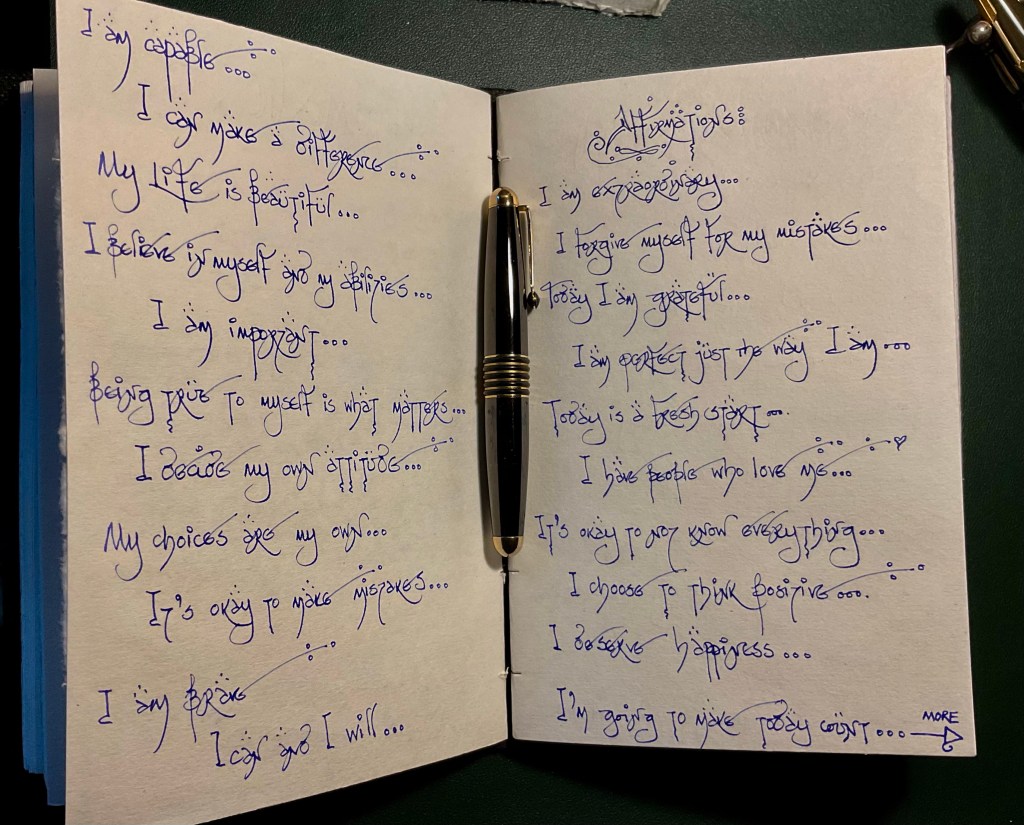 I am capable...
I can make a difference...
My Life is beautiful...
I believe in myself and my abilities...
I am important...
Being true to myself is what matters...
I decide my own attitude...
My choices are my own...
It's okay to make mistakes...
I am brave
I can and I will...
Affirmations:
I am extraordinary...
I forgive myself for my mistakes...
Today I am grateful...
I am perfect just the way I am...
Today is a fresh start...
I have people who love me...
It's okay to not know everything...
I choose to think positive....
I deserve happiness...
I'm going to make today count...
MORE